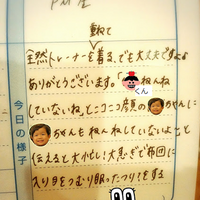 重ねて
全然トレーナーを着る、でも大丈夫ですよ
ありがとうございます。「くんねんね
していないね」とニコニコ顔の ちゃんに
ちゃんもねんねしていないよ~と
伝えると大忙し!大急ぎで布団に
入り目をつむり眠ったつもりをする
今日の様子